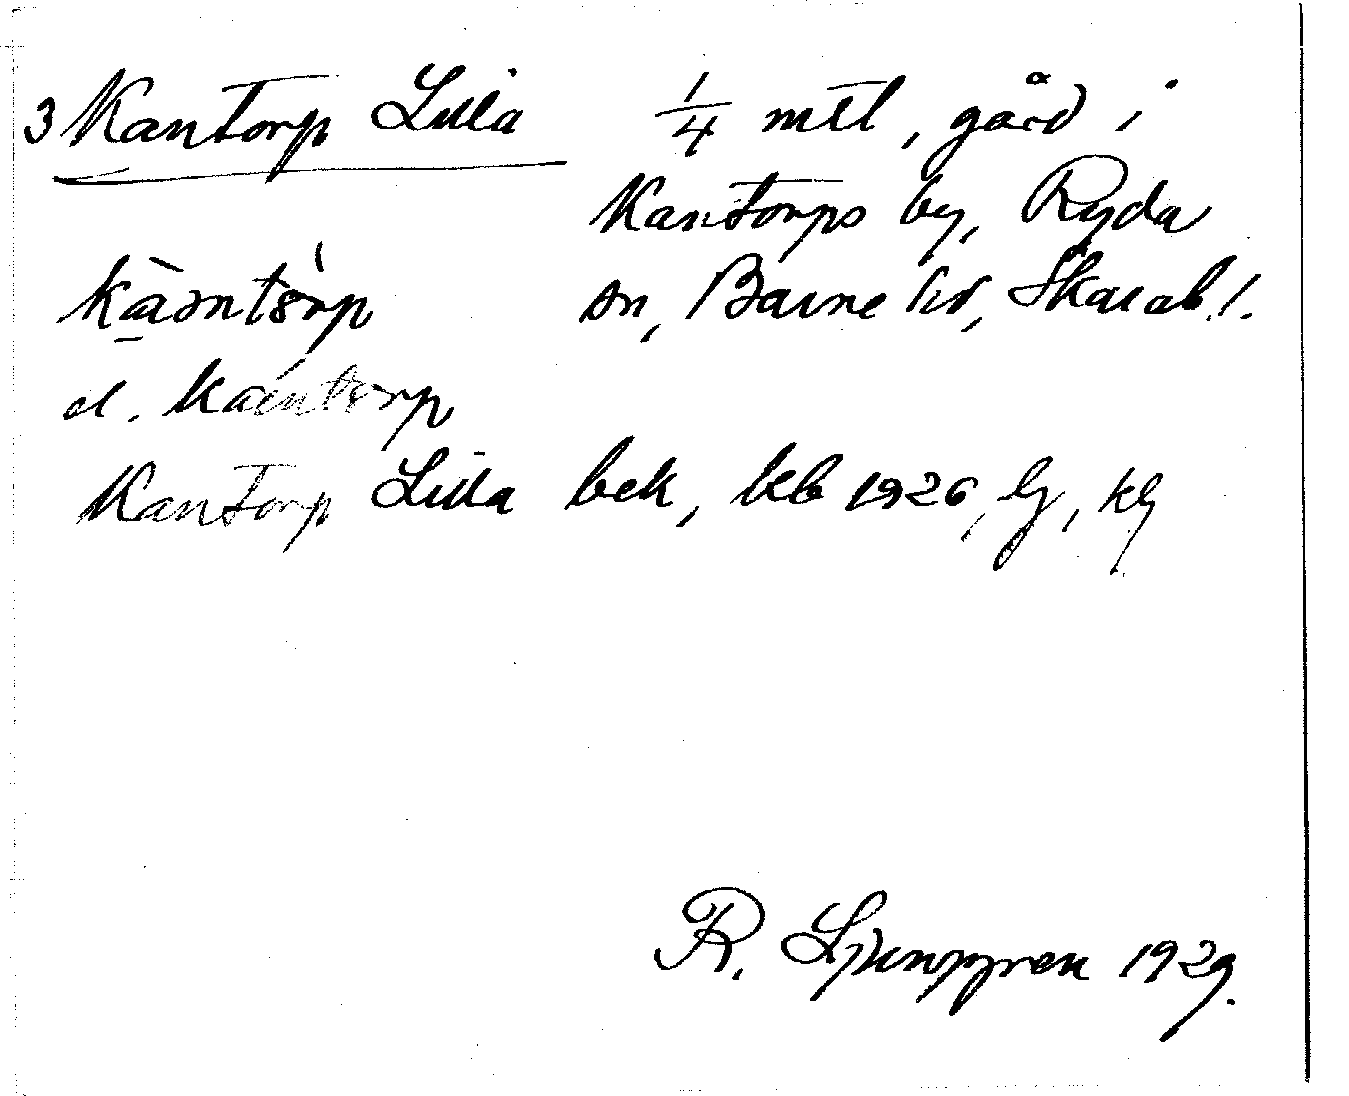 3 Kantorp Lilla 1/4 mtl, gård i
Kantorps by, Ryda
sn, Barne hd, Skarab. l.
el.
Kantorp Lilla bek, kb 1926, lj, klj
R. Ljunggren 1929.